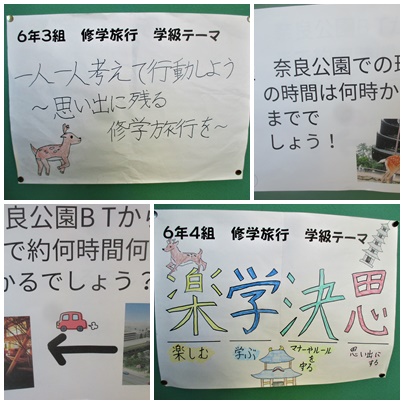 6年3組 修学旅行 学級テーマ
一人一人考えて行動しよう
～思い出に残る
修学旅行を～
奈良公園での
の時間は何時か
までで
しょう!
良公園BTから
で約何時間何
かるでしょう?
6年4組 修学旅行 学級テーマ
楽学決思
楽しむ 学ぶ マナーやルールを守る 思い出にする